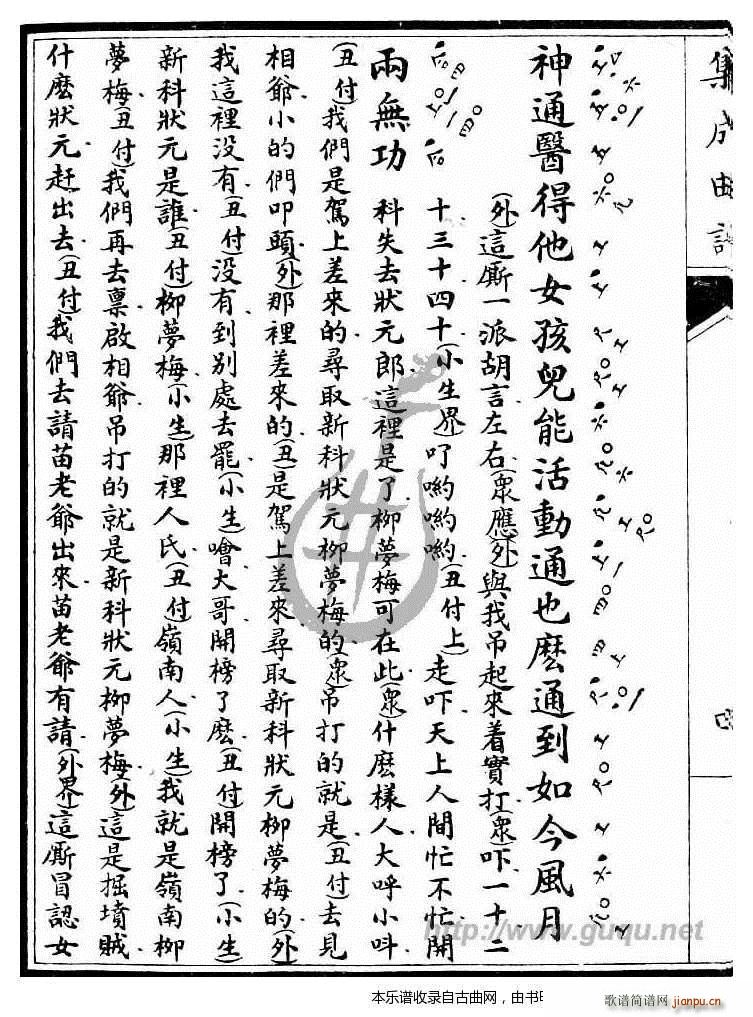 集成曲譜
四
神通醫得他女孩兒能活動通也麽通到如今風月
(外)這厮一派胡言左右(衆應)(外)與我吊起來着實打(衆)吓一十二
十三十四十(小生界)叮喲喲喲(丑付上)走吓天上人間忙不忙開
兩無功 科失去狀元郎這裡是了柳夢梅可在此(衆)什麽樣人大呼小呌
(丑付)我們是駕上差來的尋取新科狀元柳夢梅的(衆)吊打的就是(丑付)去見
相爺小的們叩頭(外)那裡差來的(丑)是駕上差來尋取新科狀元柳夢梅的(外)
我這裡没有(丑付)没有到别處去罷(小生)噲大哥開榜了麽(丑付)開榜了(小生)
新科狀元是誰(丑付)柳夢梅(小生)那裡人氏(丑付)嶺南人(小生)我就是嶺南柳
夢梅(丑付)我們再去禀啟相爺吊打的就是新科狀元柳夢梅(外)這是掘墳賊
什麽狀元赶出去(丑付)我們去請苗老爺出來苗老爺有請(外界)這厮冒認女
http://www.guqu.net
本乐谱收录自古曲网，由书
歌谱简谱网
jianpu.cn